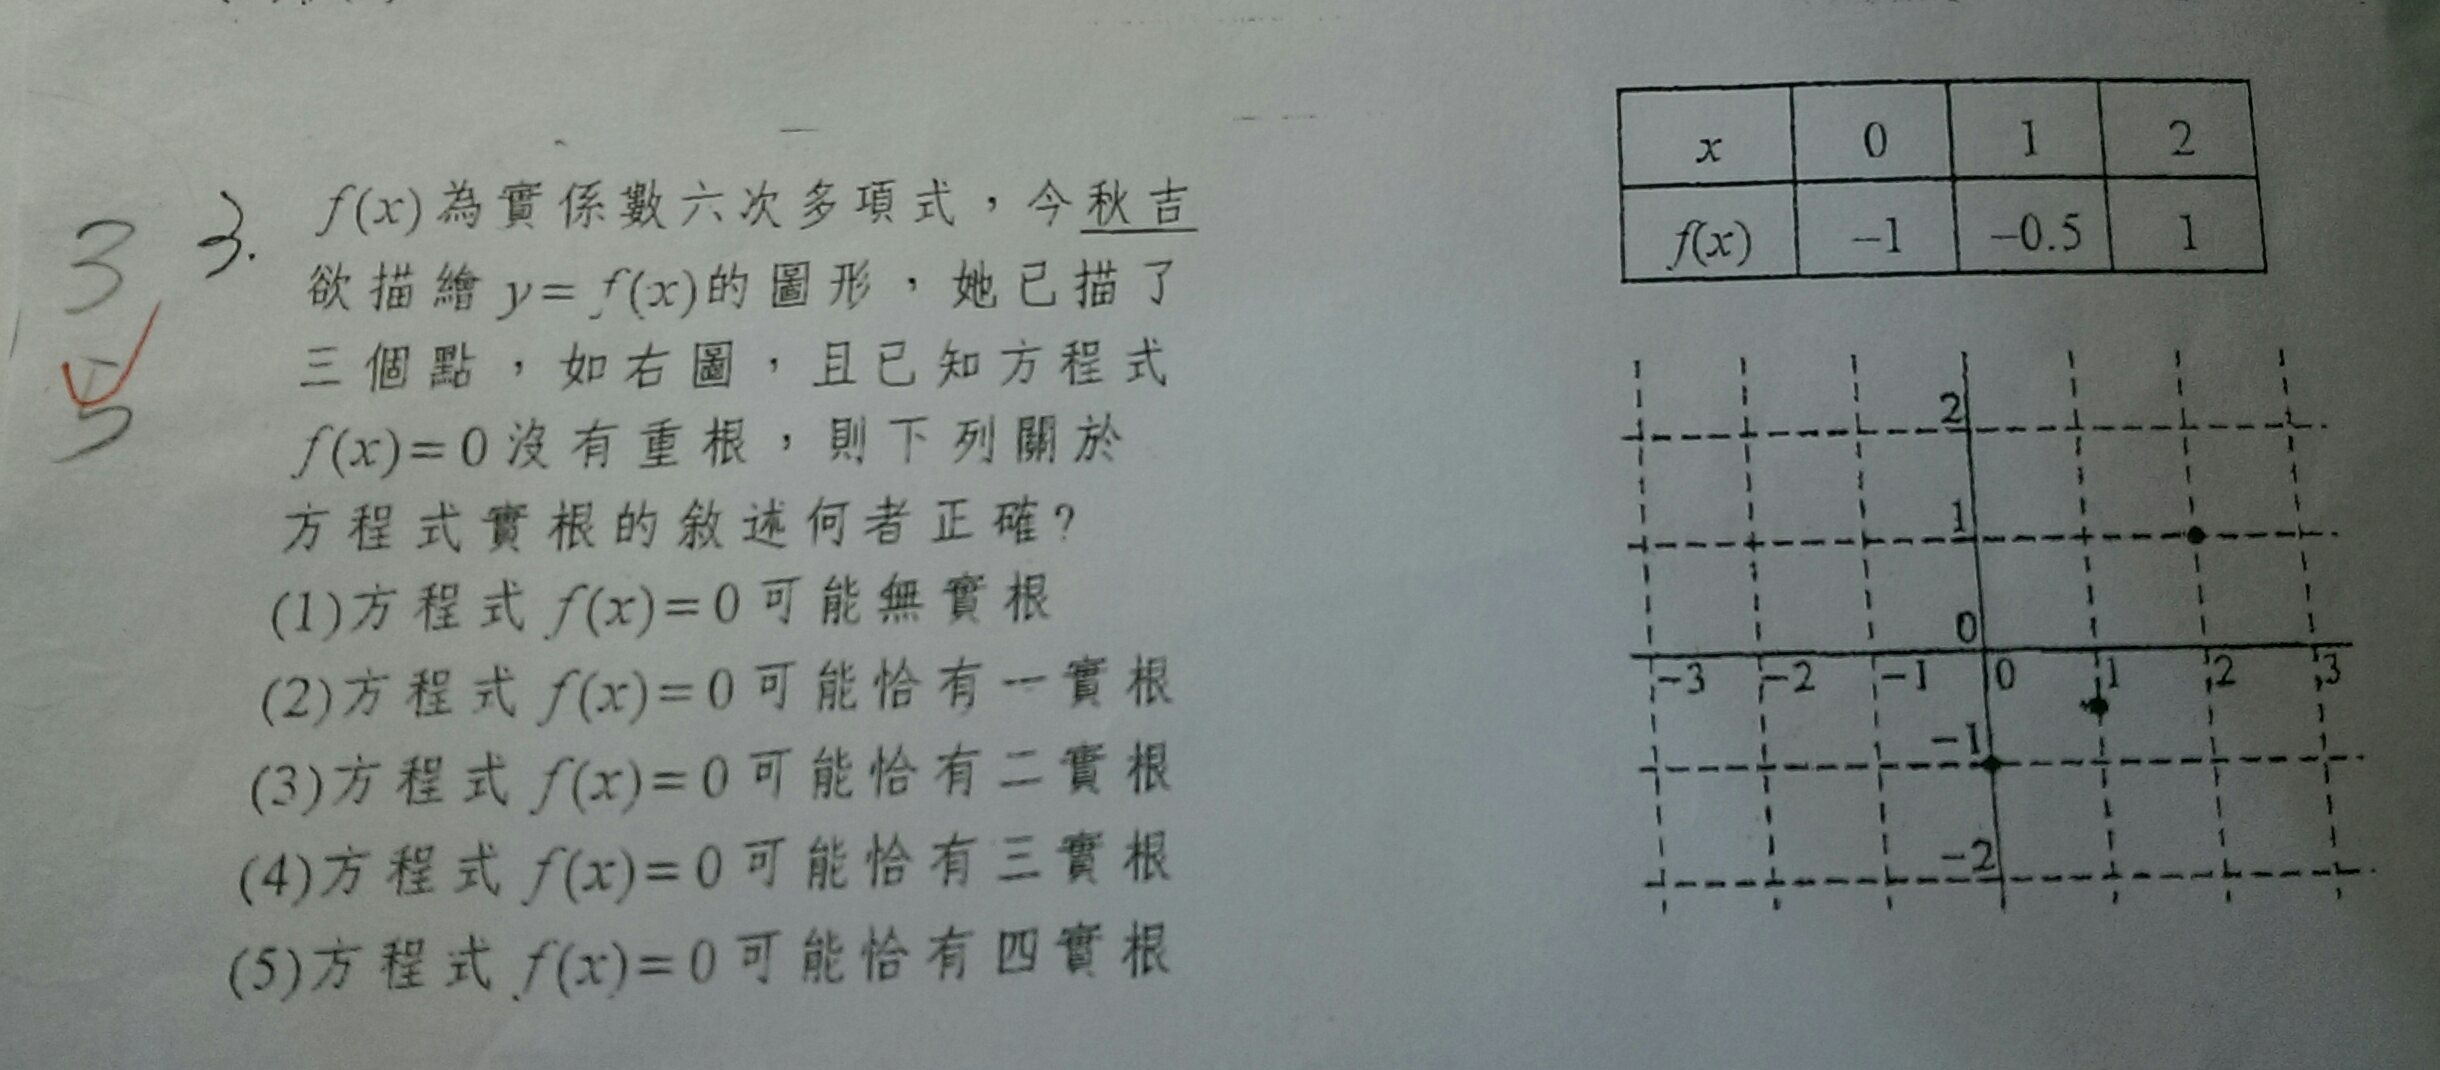 3
5
3.
f(x)為實係數六次多項式，今秋吉
欲描繪y=f(x)的圖形，她已描了
三個點，如右圖，且已知方程式
f(x)=0沒有重根，則下列關於
方程式實根的敘述何者正確?
(1)方程式f(x)=0可能無實根
(2)方程式f(x)=0可能恰有一實根
(3)方程式f(x)=0可能恰有二實根
(4)方程式f(x)=0可能恰有三實根
(5)方程式f(x)=0可能恰有四實根
x 0 1 2
f(x) -1 -0.5 1
2
1
0
-3 -2 -1 0 1 2 3
-1
-2